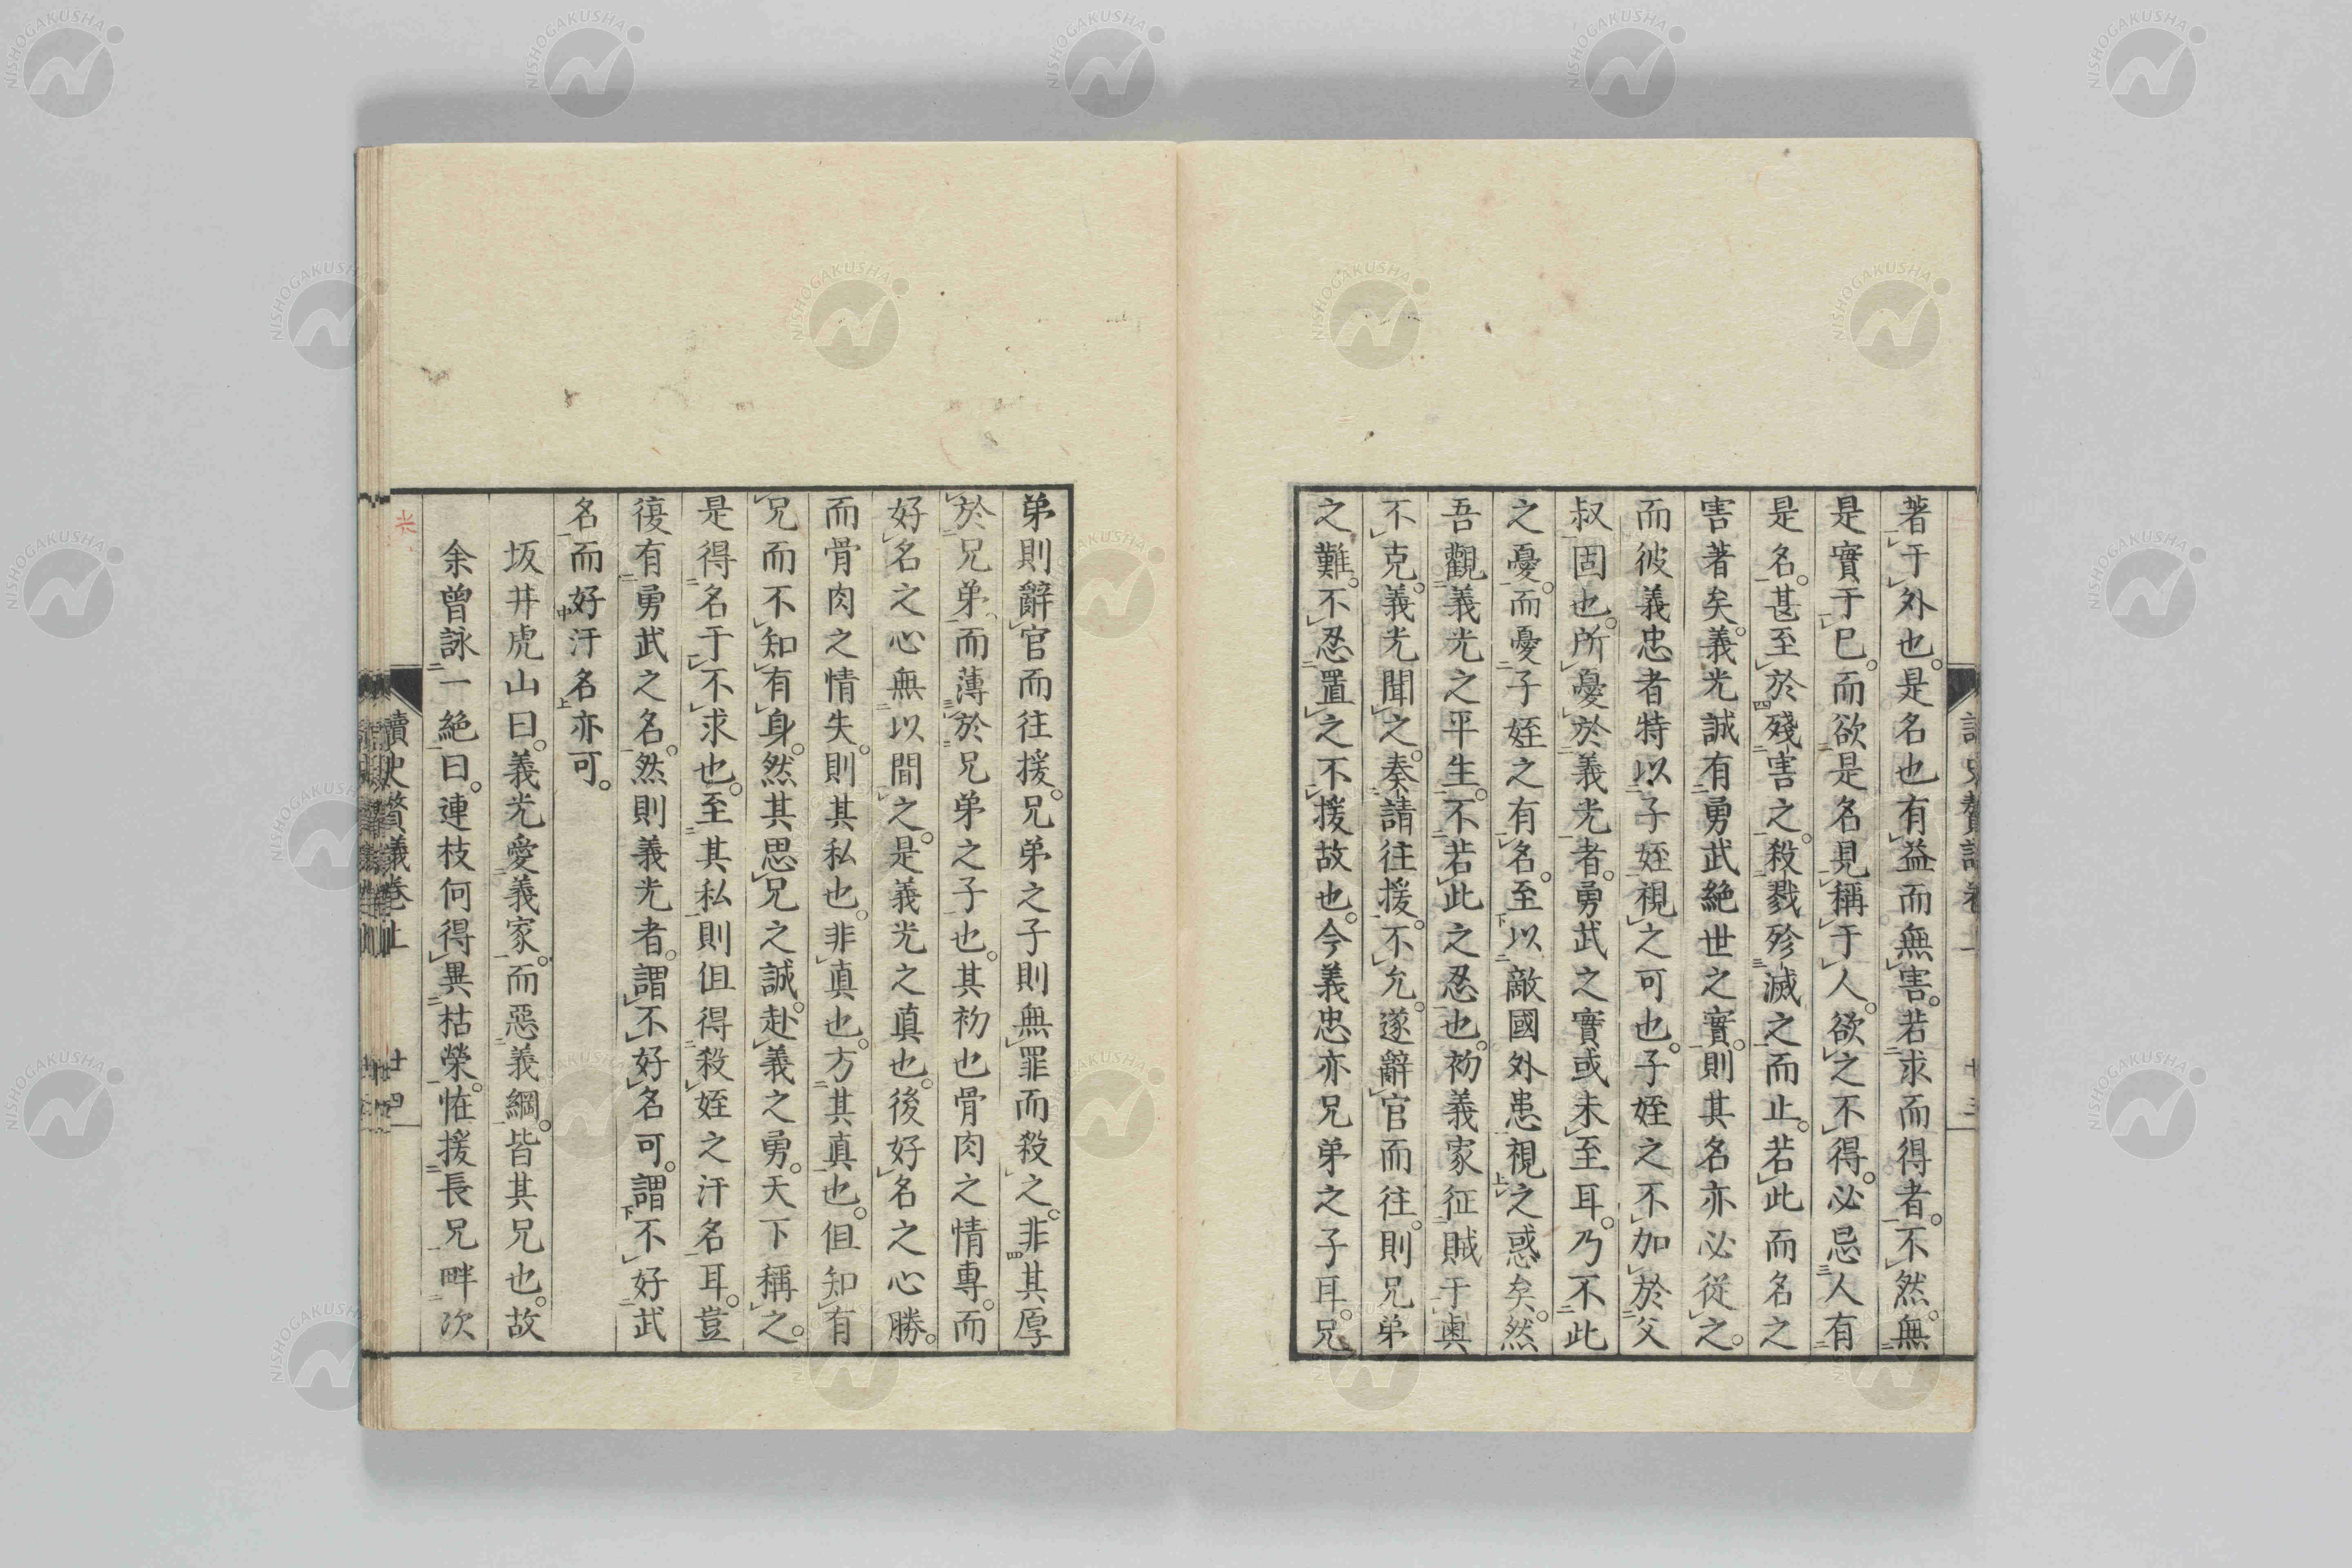 著于外也。是名也有益而無害。若求而得者。不然。無
是實于已。而欲是名見稱于人。欲之不得。必忌人有
是名。甚至於殘害之。殺戮殄滅之而止。若此而名之
害著矣。義光誠有勇武絕世之實。則其名亦必從之。
而彼義忠者特以子姪視之可也。子姪之不加於父
叔固也。所憂於義光者。勇武之實或未至耳。乃不此
之憂。而憂子姪之有名。至以敵國外患視之惑矣。然
吾觀義光之平生。不若此之忍也。初義家征賊于奧
不克。義光聞之。奏請往援。不允。遂辭官而往。則兄弟
之難。不忍置之不援故也。今義忠亦兄弟之子耳。兄
弟則辭官而往援。兄弟之子則無罪而殺之。非其厚
於兄弟、而薄於兄弟之子也。其初也骨肉之情專。而
好名之心無以間之。是義光之真也。後好名之心勝。
而骨肉之情失。則其私也。非真也。方其真也。但知有
兄而不知有身。然其思兄之誠。赴義之勇。天下稱之。
是得名于不求也。至其私則但得殺姪之汙名耳。豈
復有勇武之名。然則義光者。謂不好名可。謂不好武
名而好汙名亦可。
坂井虎山曰。義光愛義家。而惡義綱。皆其兄也。故
余曾詠一絕曰。連枝何得異枯榮。恠援長兄畔次
讀史贅議卷上
廿四
NISHOGAKUSHA